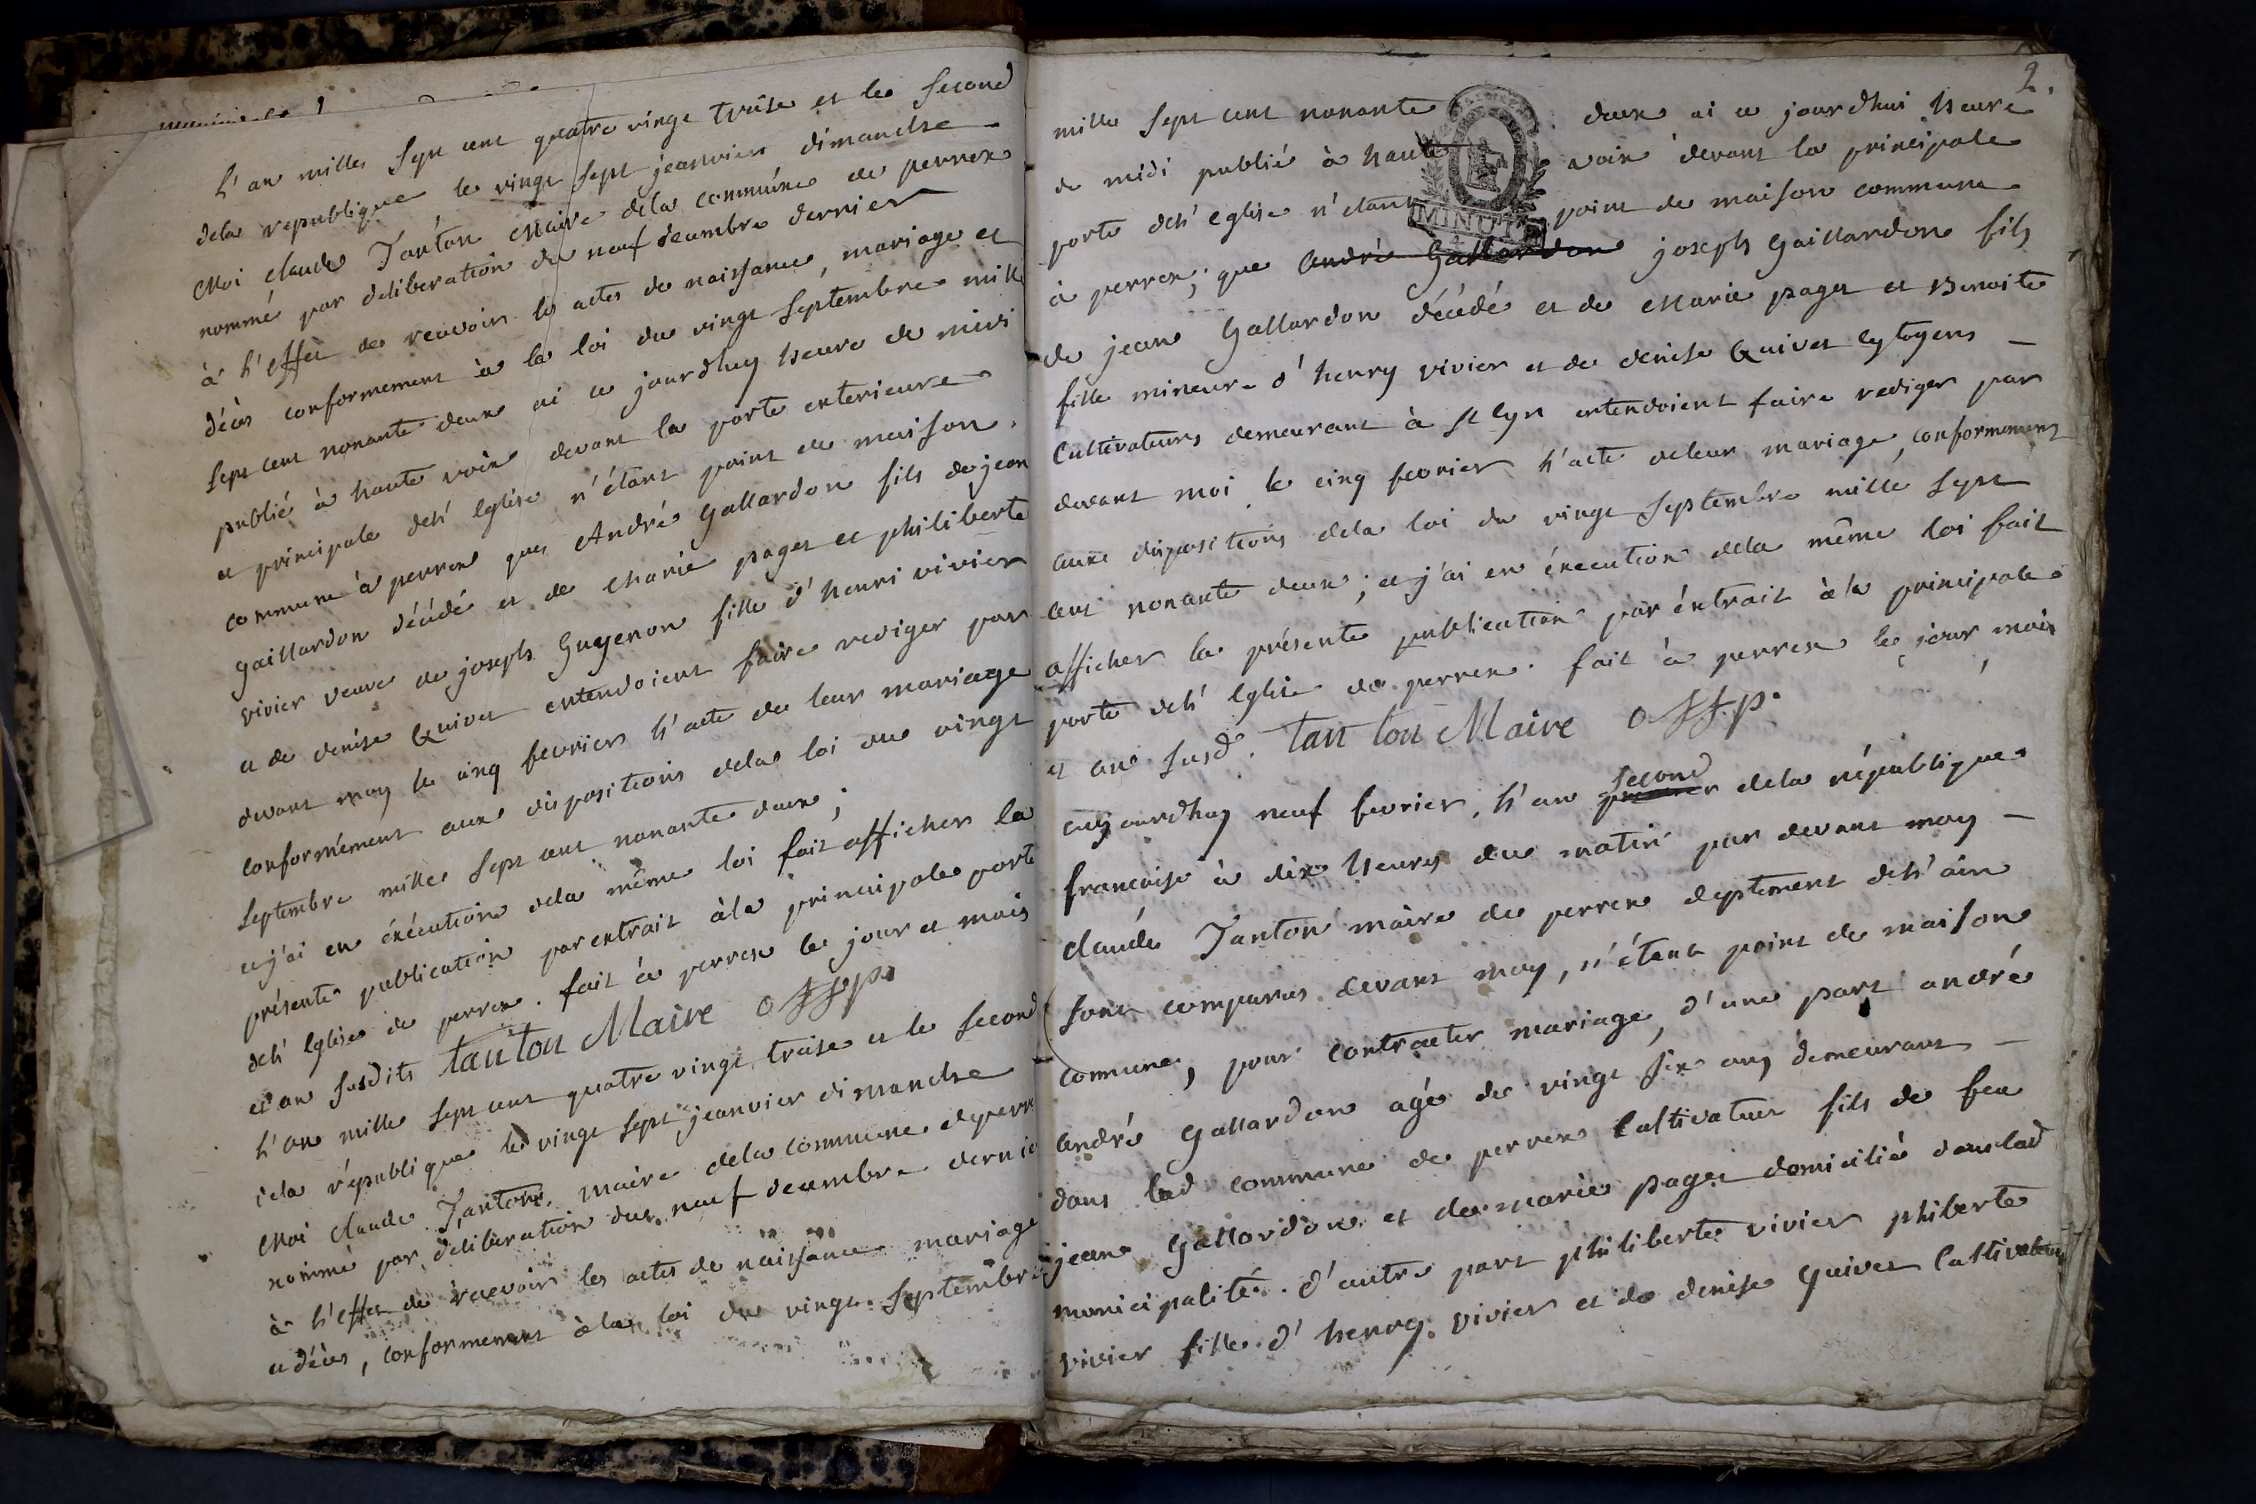 L'an mille sept cent quatre vingt treise et le second
dela republique le vingt sept jeanvier dimanche
Moi claude Tanton Maire dela commune de perrex
nommé par deliberation du neuf decembre dernier
à l'effet de recevoir les actes de naissance, mariage et
décès conformement à la loi du vingt septembre mille
sept cent nonante deux ai ce jourdhuy heure de midi
publié à haute voix devant la porte exterieure
et principale del'eglise n'étant point de maison
commune à perrex que André Gallardon fils de jean
Gaillardon décédé et de Marie paget et philiberte
vivier veuve de joseph Guyenon fille d'henri vivier
et de denise Quivet entendoient faire rediger par
devant moy le cinq fevrier l'acte de leur mariage
conformément aux dispositions dela loi du vingt
septembre mille sept cent nonante deux ;
et j'ai en éxécution dela même loi fait afficher la
présente publication par extrait àla principale porte
del'eglise de perrex. fait à perrex le jour et mois
et an susdits Tanton Maire offp.
L'an mille sept cent quatre vingt treise et le second
dela république le vingt sept jeanvier dimanche
Moi claude Tanton maire dela commune deperre
nommé par deliberation du neuf decembre dernie
à l'effet de recevoir les actes de naissance mariage
et décès, conformement àla loi du vingt septembre
2.
mille sept cent nonante deux ai ce jourdhui heure
de midi publié à haute voix devant la principale
MINUTE
porte del'eglise n'etant point de maison commune
à perrex ; que André Gallardon joseph Gaillardon fils
de jean Gallardon décédé et de Marie paget et Benoite
fille mineure d'henry vivier et de denise Quivet cytoyens
Cultivateurs demeurant à st Cyr entendoient faire rediger par
devant moi le cinq fevrier l'acte deleur mariage, conformement
aux dispositions dela loi du vingt septembre mille sept
cent nonante deux ; et j'ai en éxecution dela même loi fait
afficher la présente publication par éxtrait àla principale
porte del'eglise de perrex. fait à perrex le jour, mois
et an susd. Tanton Maire offp.
aujourdhuy neuf fevrier, l'an premier second dela république
francaise à dix heures du matin par devant moy
claude Tanton maire de perrex deptement del'ain
sont comparus devant moy, n'étant point de maison
commune, pour contracter mariage, d'une part andré
andré Gallardon agé de vingt six ans demeurant
dans lad commune de perrex Cultivateur fils de feu
jean Gallardon et de marie paget domicilié dans lad
municipalité. d'autre part philiberte vivier phiberte
vivier fille d'henry vivier et de denise Quivet Cultivateurs